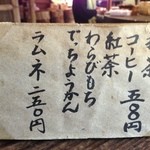 コーヒー 五〇円
紅茶
わらびもち
でっちようかん
ラムネ 二五〇円